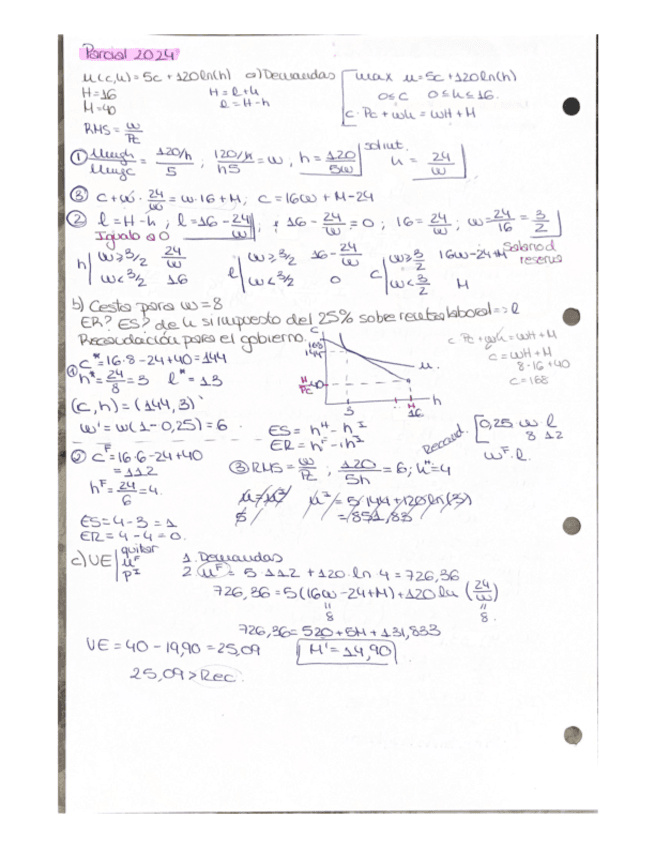 Parcial 2024
u(c,h) = 5c + 120 ln(h) a) Demandas [max u = 5c + 120 ln(h)
H = 16 H = l + h 0 ≤ c 0 ≤ h ≤ 16.
M = 40 l = H - h c · Pc + wh = wH + M
RMS = w/Pc
① Umgh/Umgc = 120/h / 5 ; 120/h / h5 = w , h = 120/5w | soliut. h = 24/w
③ c + w · 24/w = w · 16 + M ; c = 16w + M - 24
② l = H - h ; l = 16 - 24/w ; 16 - 24/w = 0 ; 16 = 24/w ; w = 24/16 = 3/2
Igualo a 0 Salario d reserva
h | w ≥ 3/2 24/w l | w ≥ 3/2 16 - 24/w c | w ≥ 3/2 16w - 24 + M
w < 3/2 16 w < 3/2 0 w < 3/2 M
b) Cesta para w = 8
ER? ES? de h si impuesto del 25% sobre renta laboral => l
Recaudación para el gobierno.
① c* = 16·8 - 24 + 40 = 144
h* = 24/8 = 3 l* = 13
(c, h) = (144, 3)
w' = w(1 - 0,25) = 6
c
168
144
M/Pc 40
u.
3
H
16
h
c · Pc + wh = wH + M
c = wH + M
8 · 16 + 40
c = 168
ES = h^H - h^I
ER = h^F - h^H
Recaud. [0,25 · w · l
8 12
w^F · l.
② c^F = 16·6 - 24 + 40
= 112
h^F = 24/6 = 4.
③ RMS = w/Pc ; 120/5h = 6 ; h^H = 4
u^I = 5·144 + 120 ln(3)
= 851,83
ES = 4 - 3 = 1
ER = 4 - 4 = 0.
c) VE | quitar u^F p^I
1. Demandas
2. u^F = 5 · 112 + 120 · ln 4 = 726,36
726,36 = 5(16w - 24 + M) + 120 ln (24/w)
8 8.
726,36 = 520 + 5M + 131,833
VE = 40 - 19,90 = 25,09 M' = 14,90
25,09 > Rec.